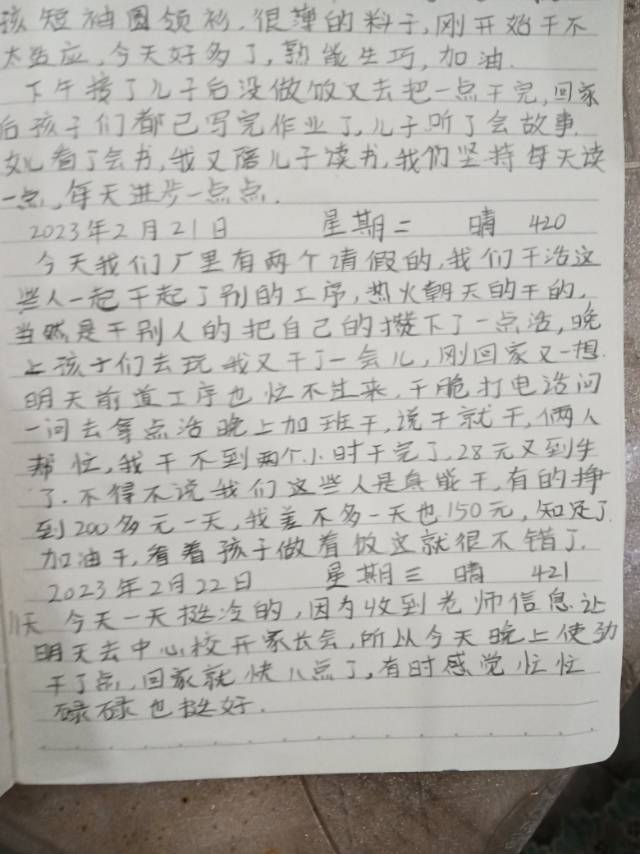 孩短袖圆领衫，很薄的料子，刚开始干不
太适应，今天好多了，熟能生巧，加油.
下午接了儿子后没做饭又去把一点干完，回家
后孩子们都已写完作业了，儿子听了会故事.
女儿看了会书，我又陪儿子读书，我们坚持每天读
一点，每天进步一点点.
2023年2月21日 星期二 晴 420
今天我们厂里有两个请假的，我们干活这
些人一起干起了别的工序，热火朝天的干的，
当然是干别人的把自己的攒下了一点活，晚
上孩子们去玩我又干了一会儿，刚回家又一想.
明天前道工序也忙不过来，干脆打电话问
一问去拿点活晚上加班干，说干就干，俩人
帮忙，我干不到两个小时干完了，28元又到手
了.不得不说我们这些人是真能干，有的挣
到200多元一天，我差不多一天也150元，知足了
加油干，看着孩子做着饭这就很不错了.
2023年2月22日 星期三 晴 421
今天一天挺冷的，因为收到老师信息让
明天去中心校开家长会，所以今天晚上使劲
干了点，回家就快八点了，有时感觉忙忙
碌碌也挺好.